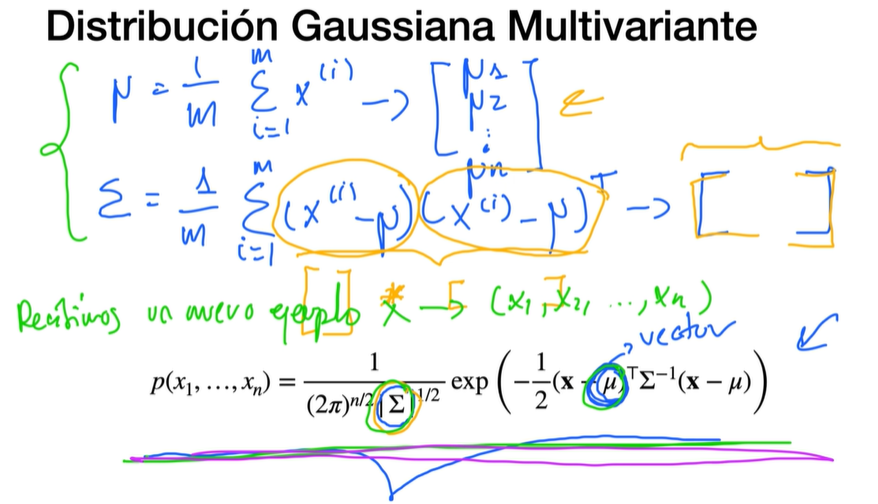 Distribución Gaussiana Multivariante
μ = 1/m Σ_{i=1}^{m} x^{(i)} → [μ1 μ2 ⋮ μn] ←
Σ = 1/m Σ_{i=1}^{m} (x^{(i)} − μ)(x^{(i)} − μ)^T → [ ]
Recibimos un nuevo ejemplo x → (x1, x2, ..., xn)
vector
p(x₁, …, xₙ) = 1 / ((2π)^{n/2} |Σ|^{1/2}) exp(−1/2 (x − μ)^⊤ Σ^{−1} (x − μ))